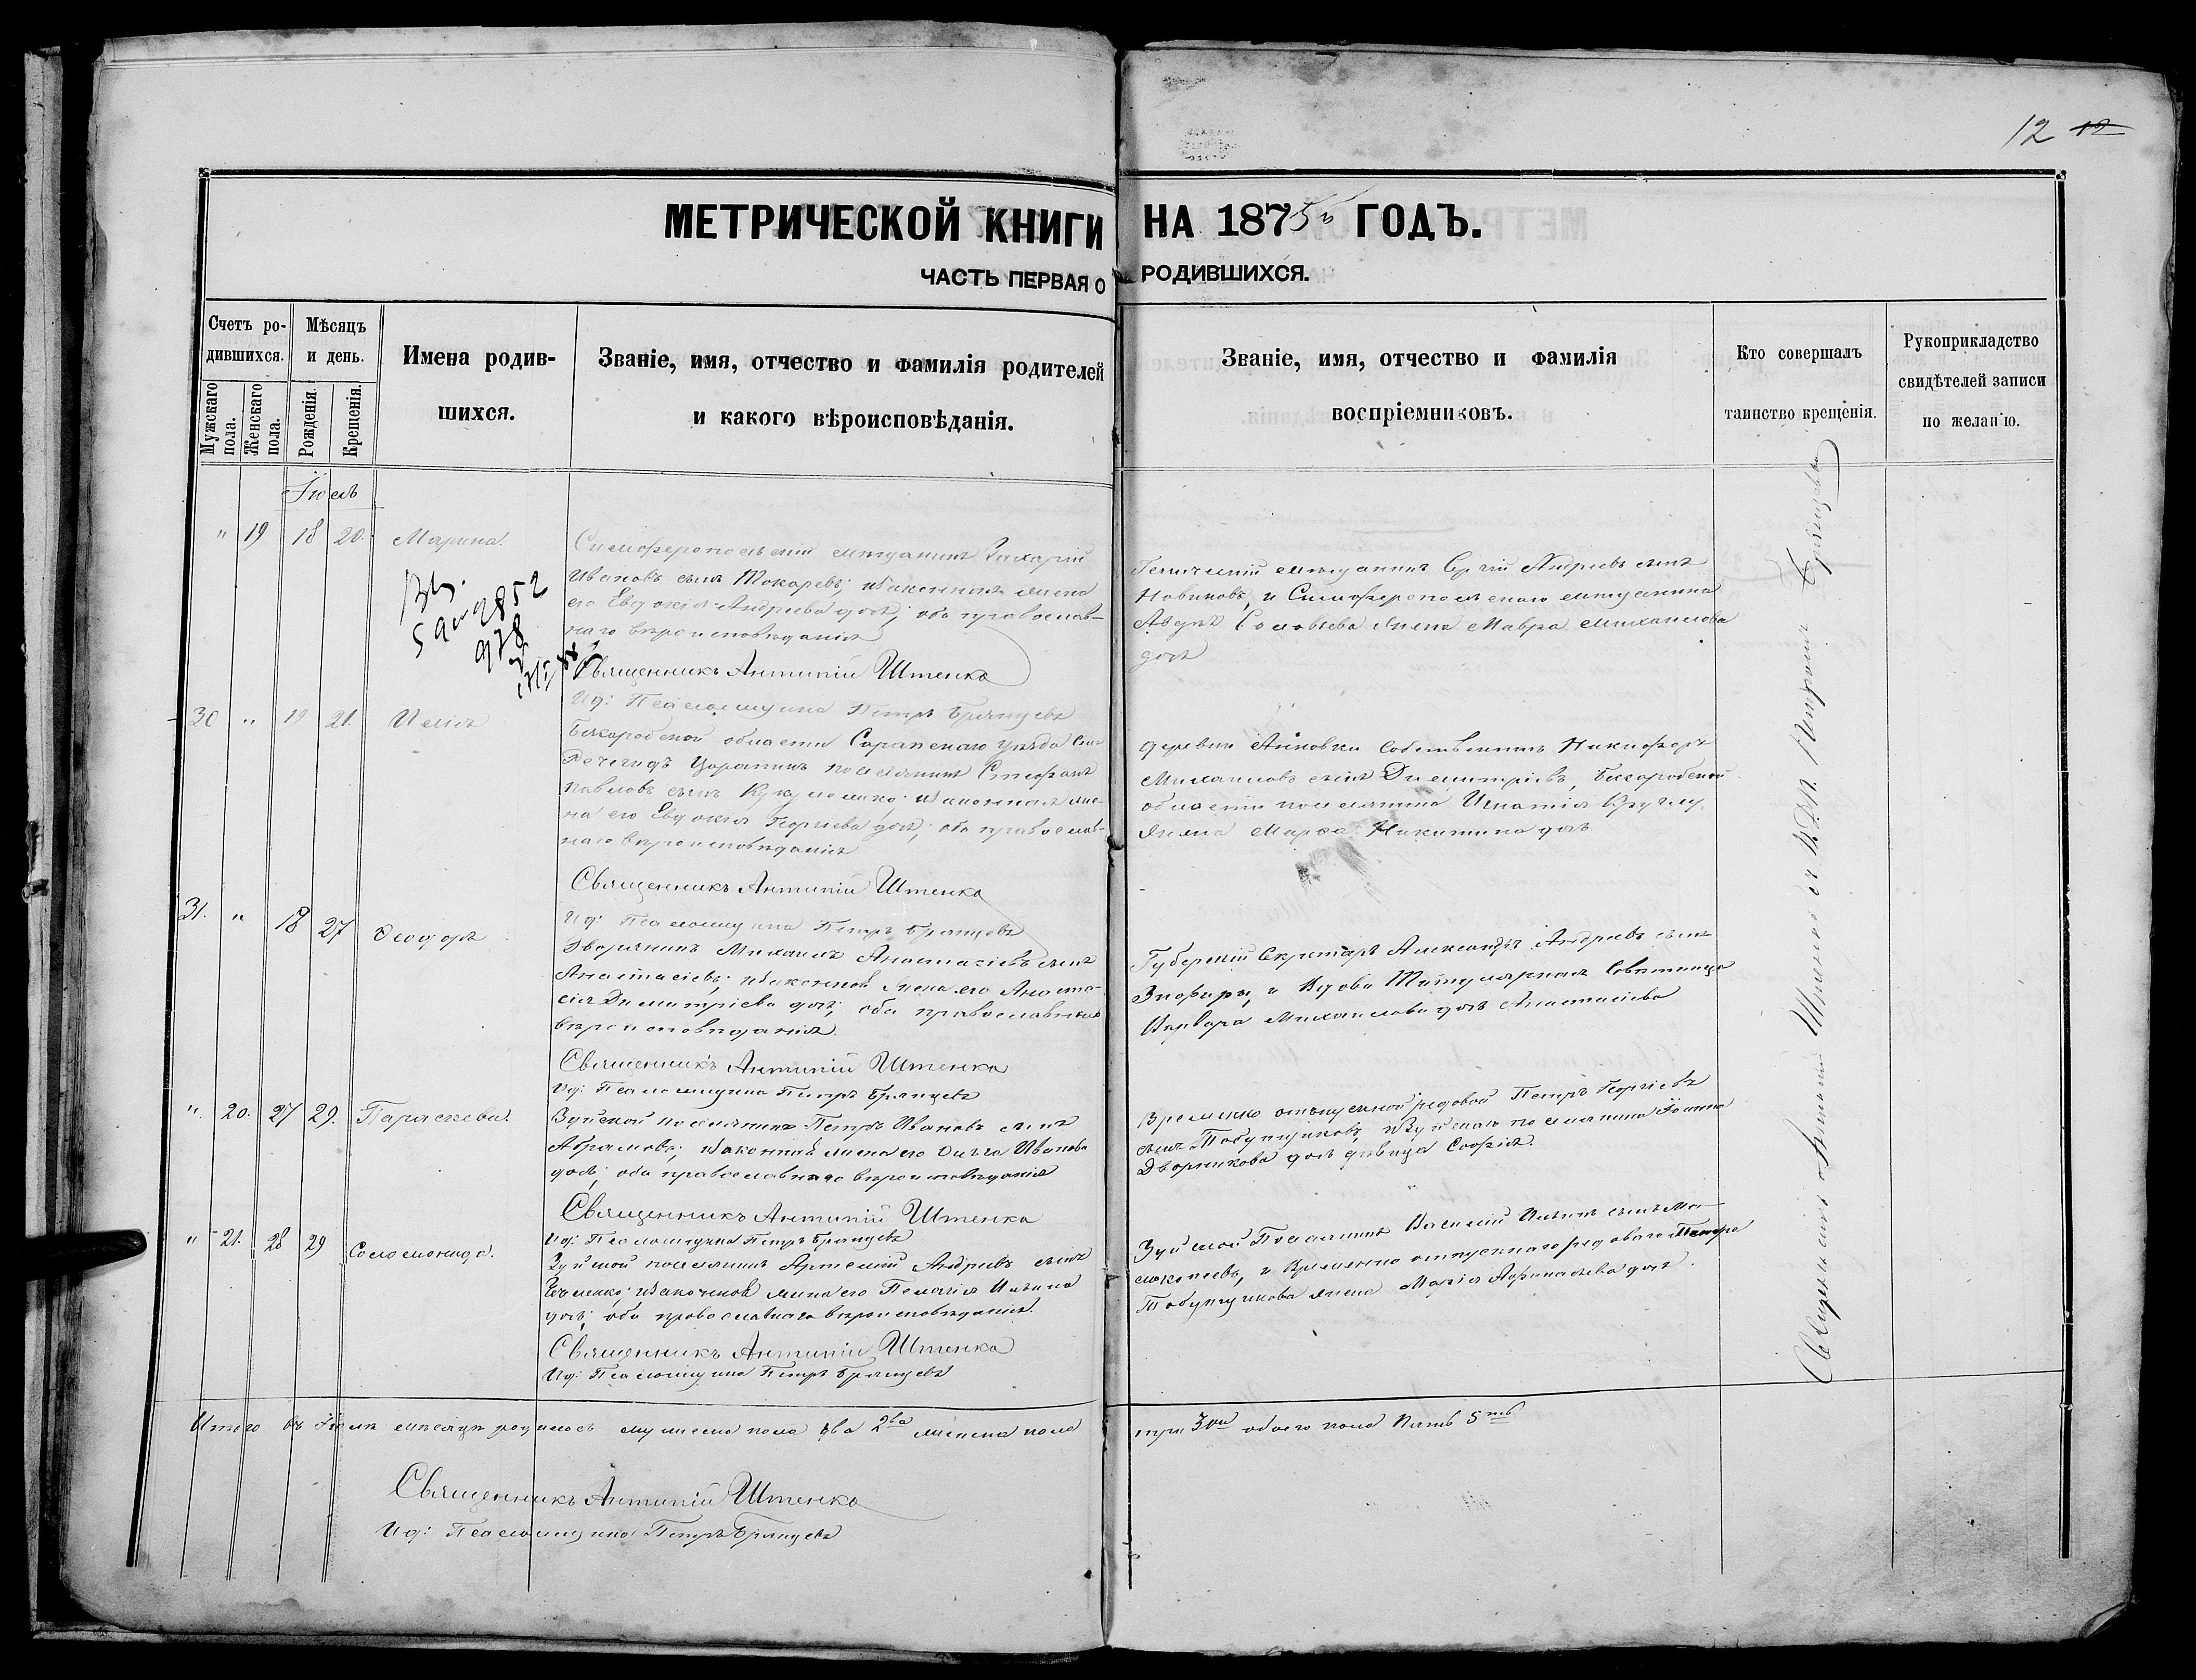 12 12
МЕТРИЧЕСКОЙ КНИГИ НА 1875й ГОДЪ.
ЧАСТЬ ПЕРВАЯ О РОДИВШИХСЯ.
Счетъ ро-
дившихся.
Мужскаго пола.
Женскаго пола.
Мѣсяцъ
и день.
Рожденія.
Крещенія.
Имена родив-
шихся.
Званіе, имя, отчество и фамилія родителей
и какого вѣроисповѣданія.
Званіе, имя, отчество и фамилія
воспріемниковъ.
Кто совершалъ
таинство крещенія.
Рукоприкладство
свидѣтелей записи
по желанію.
Іюль
" 19 18 20. Марина.
Симферопольскій мѣщанинъ Захарій
Ивановъ сынъ Токаревъ; и законная жена
его Евдокія Андреева дочь; оба православ-
наго вѣроисповѣданія
Священникъ Антипій Штенко
Ид: Псаломщика Петръ Брянцевъ
мѣщанинъ Сергій Андреевъ сынъ
Новиковъ, и Симферопольскаго мѣщанина
Соловьева жена Мавра Михаилова
дочь
30 " 19 21. Илія
области уѣзда
поселянинъ Стефанъ
Павловъ сынъ и законная же-
на его Евдокія Георгіева дочь; оба православ-
наго вѣроисповѣданія
Священникъ Антипій Штенко
Ид: Псаломщика Петръ Брянцевъ
деревни собственникъ Никифоръ
Михаиловъ сынъ Димитріевъ,
области поселянина Игнатія
жена Марѳа Никитина дочь
31. " 18 27 Ѳеодоръ
Дворянинъ Михаилъ Анастасіевъ сынъ
Анастасіевъ; и законная жена его Анаста-
сія Димитріева дочь; оба православнаго
вѣроисповѣданія.
Священникъ Антипій Штенко
Ид: Псаломщика Петръ Брянцевъ
Губернскій Секретарь Александръ Андреевъ сынъ
и Вдова Титулярная Совѣтница
Варвара Михаилова дочь Анастасіева
" 20. 27 29. Параскева.
Зуйской поселянинъ Петръ Ивановъ сынъ
Абрамовъ; и законная жена его Ольга Иванова
дочь; оба православнаго вѣроисповѣданія
Священникъ Антипій Штенко
Ид: Псаломщика Петръ Брянцевъ
Временно отпускной рядовой Петръ Георгіевъ
сынъ Табунщиковъ, и Зуйскаго поселянина Іоанна
Дворникова дочь дѣвица Софія.
" 21. 28 29 Соломонида.
Зуйской поселянинъ Артемій Андреевъ сынъ
и законная жена его Пелагія Ильина
дочь; оба православнаго вѣроисповѣданія.
Священникъ Антипій Штенко
Ид: Псаломщика Петръ Брянцевъ
Зуйской Поселянинъ Василій сынъ
и Временно отпускнаго рядоваго Петра
Табунщикова жена Марія дочь.
Священникъ Антипій Штенко
Итого въ Іюлѣ мѣсяцѣ родилось мужеска пола два 2ва женска пола три 3ри обоего пола Пять 5ть
Священникъ Антипій Штенко
Ид: Псаломщика Петръ Брянцевъ